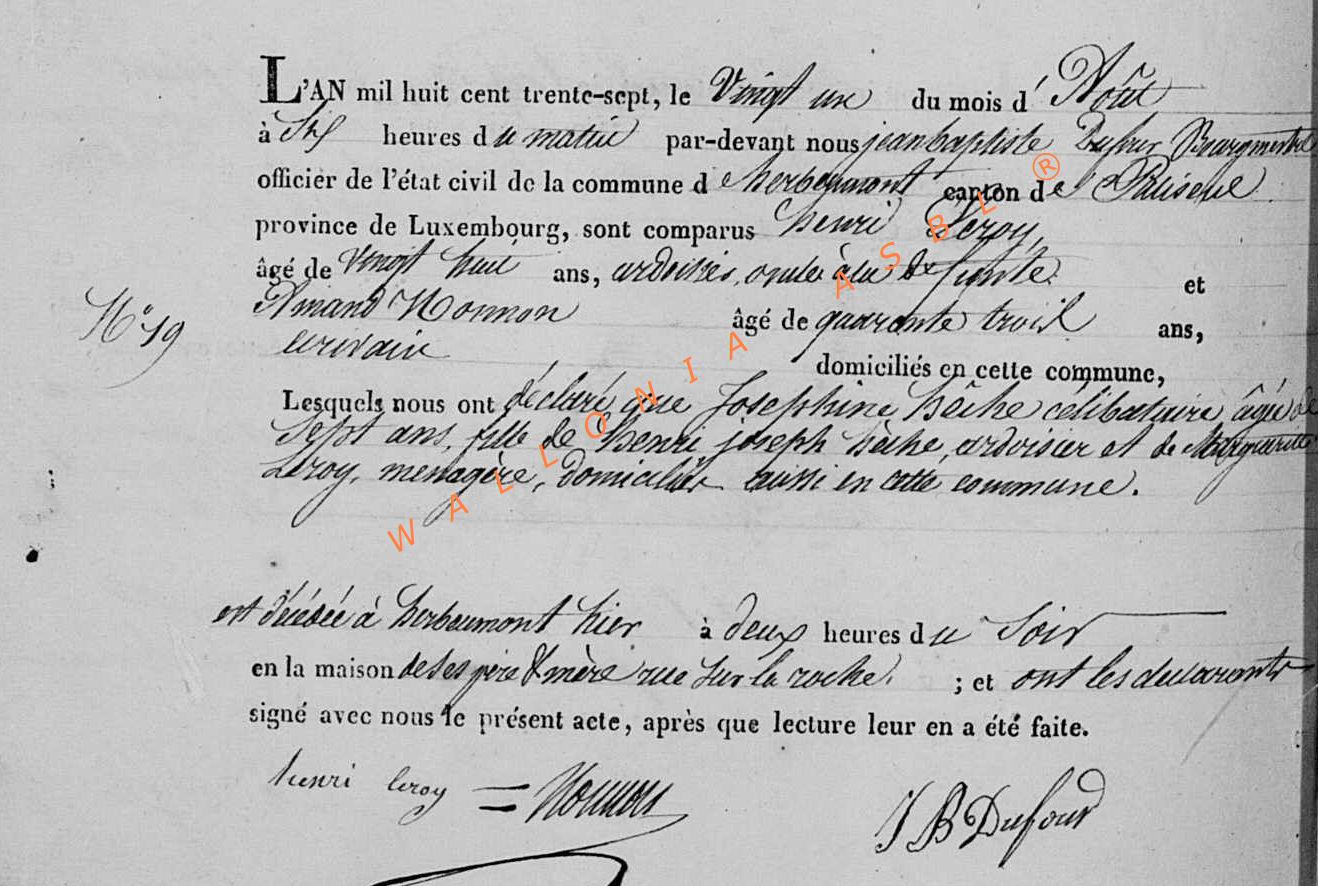 L'AN mil huit cent trente-sept, le Vingt un du mois d' Aôut
à Six heures du matin par-devant nous jean baptiste Dufour Bourgmestre
officier de l'état civil de la commune d'herbeumont canton de Paliseul
province de Luxembourg, sont comparus henri Leroy,
âgé de vingt huit ans, ardoisier, oncle à la defunte et
N° 19
Amand Nonnon âgé de quarante trois ans,
ecrivain domiciliés en cette commune,
Lesquels nous ont déclaré que Josephine hêche célibataire âgée de
Sept ans, fille de henri joseph hêche, ardoisier et de Marguerite
Leroy, menagère, domiciliés aussi en cette commune.
est décédée à herbeumont hier à deux heures du Soir
en la maison de Ses père & mère rue Sur la roche. ; et ont les declarants
signé avec nous le présent acte, après que lecture leur en a été faite.
henri leroy = Nonnon
J B Dufour
WALLONIA ASBL ®